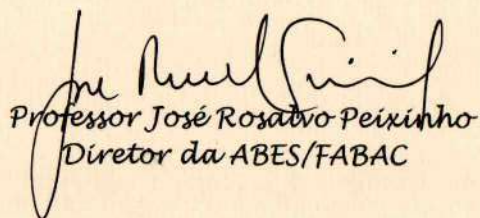 Professor José Rosalvo Peixinho
Diretor da ABES/FABAC